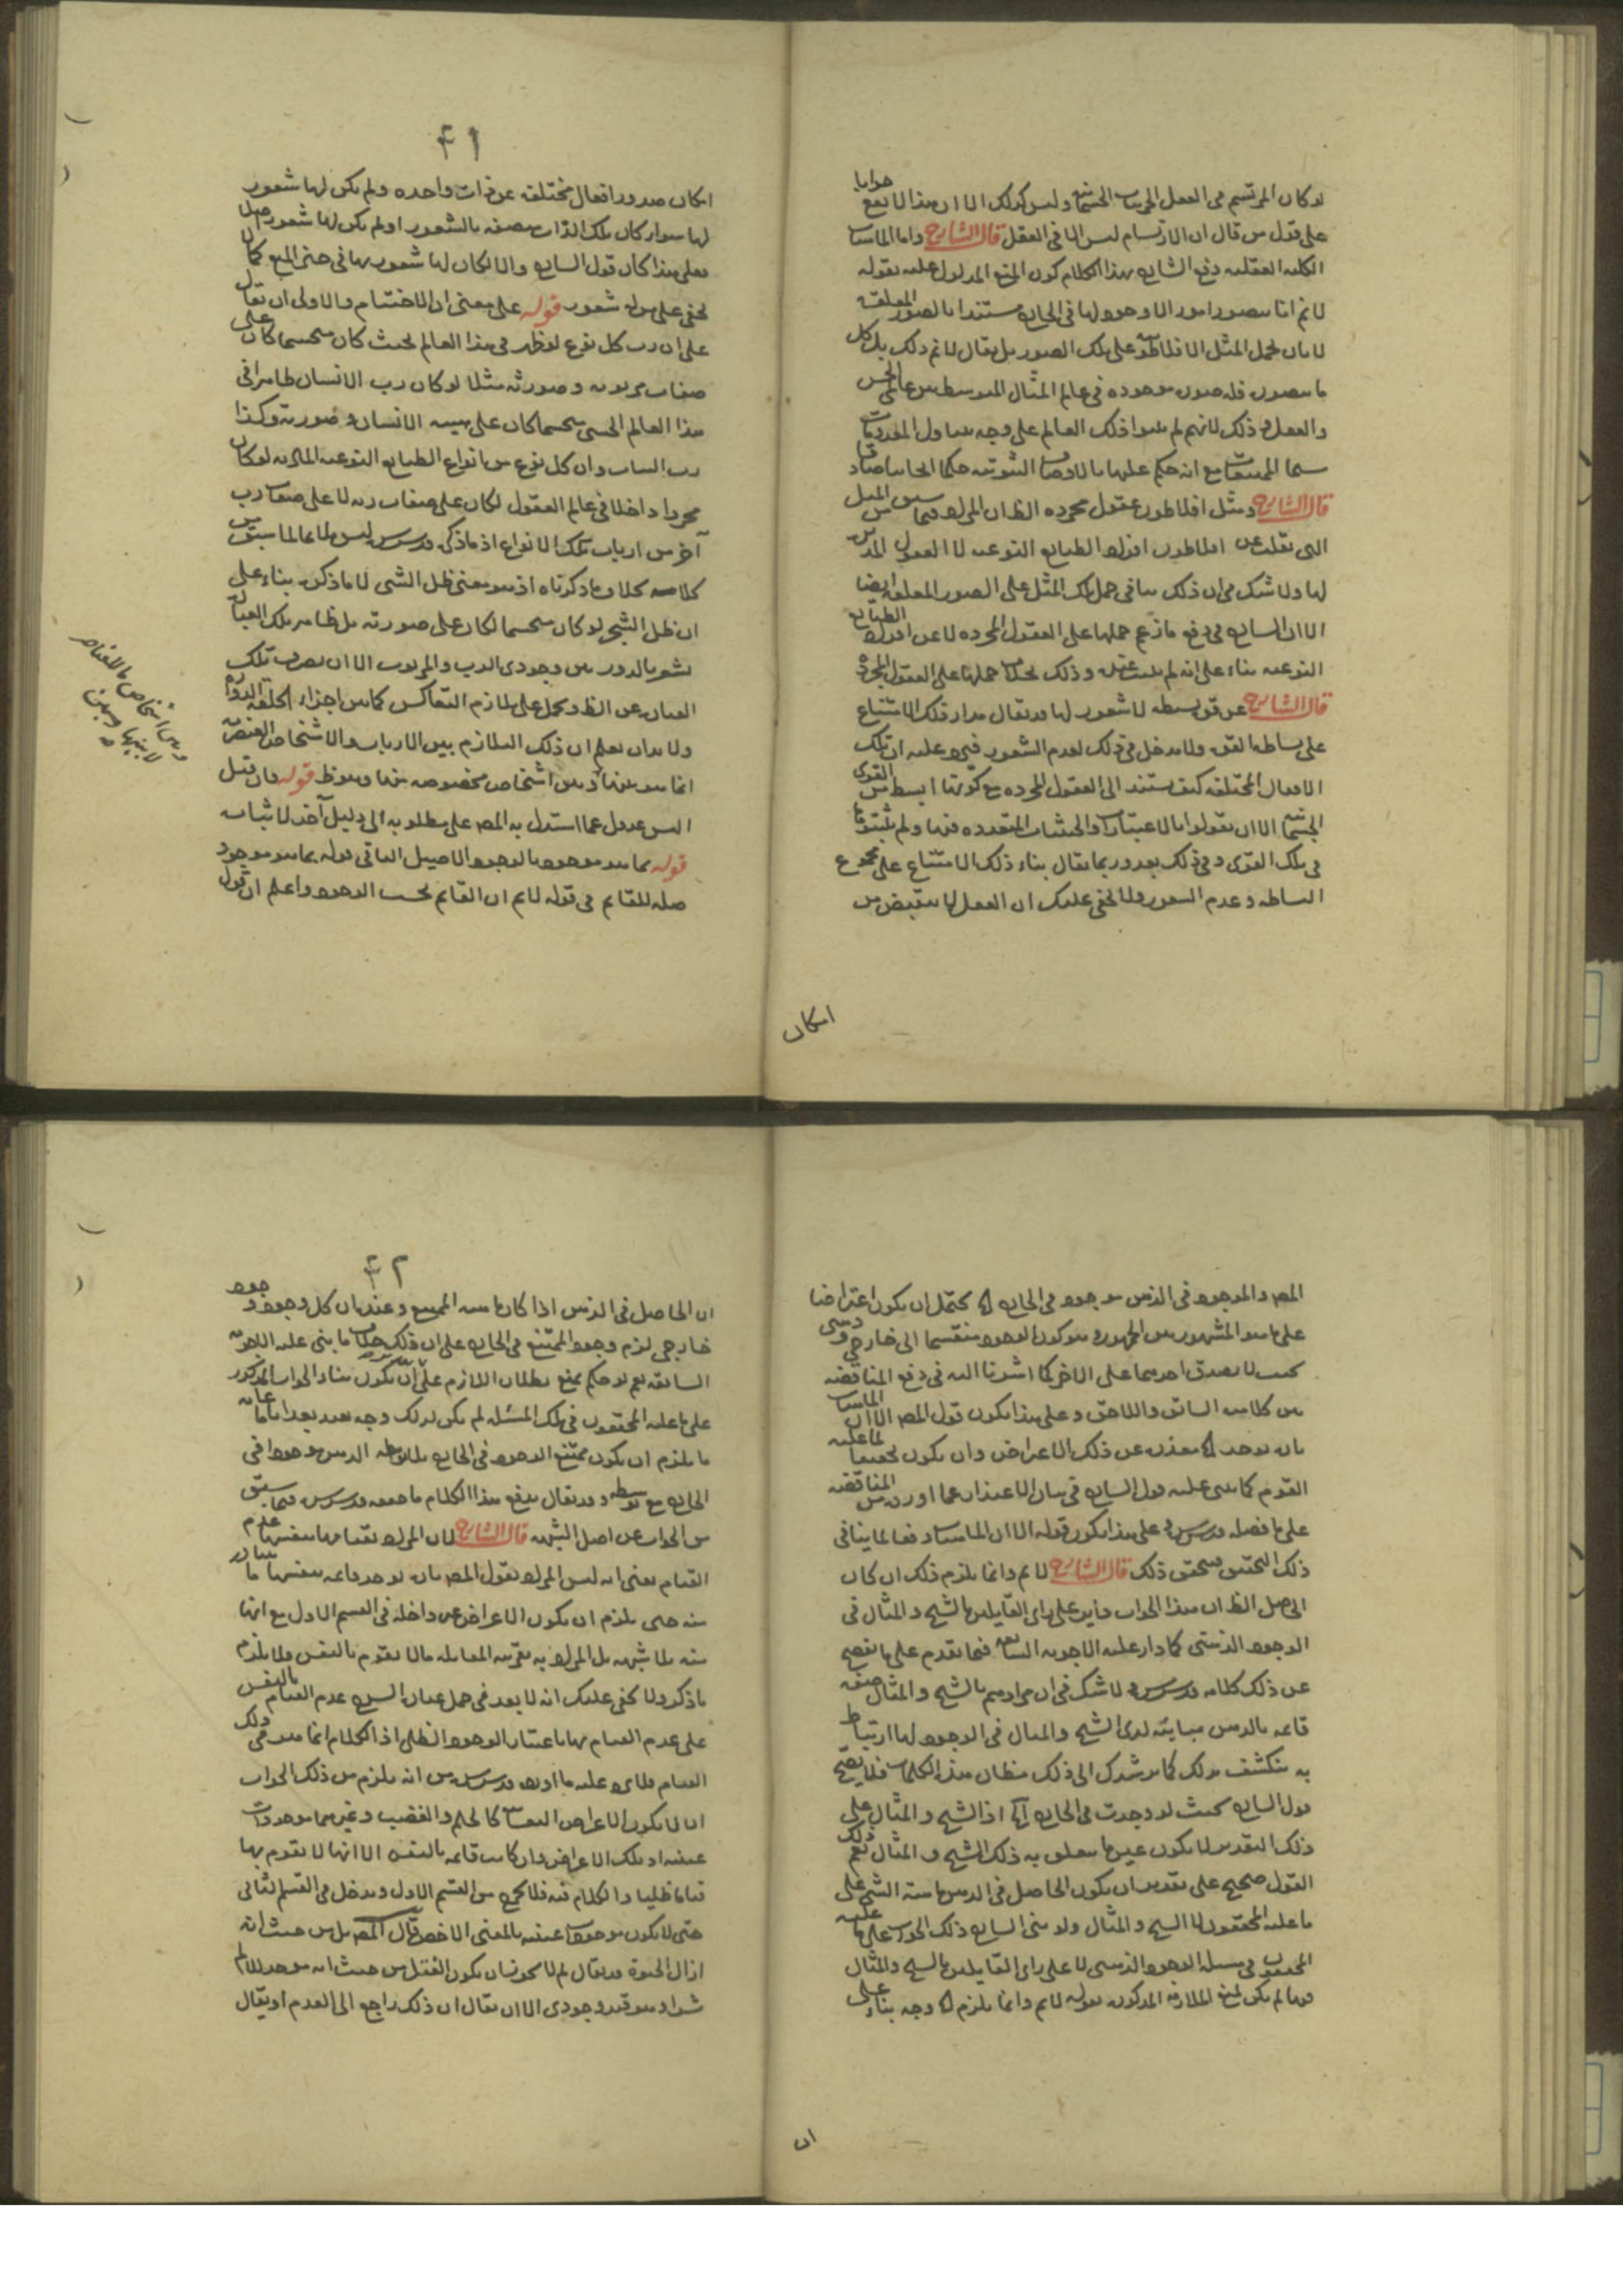 لو كان المرتسم فى العقل الجزئيات الجسمانية وليس كذلك الا ان هذا لا يقع جوابا
على قول من قال ان الارتسام ليس الا فى العقل قال الشارح واما الماهيات
الكلية العقلية دفع الشارح بهذا الكلام كون المنع المدلول عليه بقوله
لانم انا نتصور امورا لا وجود لها فى الخارج مستندا بالصور المعلقة
لا بان يحمل المثل الافلاطونية على تلك الصور بل يقال لانم ذلك بل كل
ما نتصوره فله صورة موجودة فى عالم المثال المتوسط بين عالمى الحس
والعقل وذلك لانهم لم يثبتوا ذلك العالم على وجه يتناول المعدومات
سيما الممتنعات مع انه حكم عليها بالاوصاف الثبوتية حكما ايجابيا صادقا
قال الشارح ومثل افلاطون عقول مجردة الظ ان المراد فيما سبق من المثل
التى نقلت عن افلاطون افراد الطبايع النوعية لا العقول المدبرة
لها ولا شك فى ان ذلك ينافى حمل تلك المثل على الصور المعلقة ايضا
الا ان الشارح فى دفع ما زعم حملها على العقول المجردة لا عن افراد الطبايع
النوعية بناء على انه لم يلتفت عقيبه وذلك بخلاف حملها على العقول المجردة
قال الشارح عن قوى بسيطة لا شعور لها قد يقال مدار ذلك الامتناع
على بساطة القوة ولا مدخل فى ذلك لعدم الشعور فيرد عليه ان تلك
الافعال المختلفة كيف تستند الى العقول المجردة مع كونها ابسط من القوى
الجسمانية الا ان يقولوا بالاعتبارات والحيثيات المتعددة فيها ولم يثبتوها
فى تلك القوى وفى ذلك بعد وربما يقال بناء ذلك الامتناع على مجموع
البساطة وعدم الشعور ولا يخفى عليك ان العقل لا ينقبض من
امكان
۴۱
امكان صدور افعال مختلفة عن ذات واحدة ولم يكن لها شعور
لها سواء كان تلك الذات متصفة بالشعور او لم يكن لها شعور اصلا
فعلى هذا كان قول الشارح والا لكان لها شعور بها فى حيز المنع كما لا
يخفى على من له شعور قوله على معنى ان الاختتام والاولى ان يقال
على ان رب كل نوع لو ظهر فى هذا العالم بحيث كان متجسما كان على
صفات مربوبه وصورته مثلا لو كان رب الانسان ظاهرا فى
هذا العالم الحسى متجسما كان على هيئة الانسان وصورته وكذا
رب النبات وان كل نوع من انواع الطبايع النوعية المادية لو كان
مجردا داخلا فى عالم العقول لكان على صفات ربه لا على صفات رب
آخر من ارباب تلك الانواع اذ ما ذكره قدس سره ليس ملايما لما سبق من
كلامه بخلاف ما ذكرناه اذ هو معنى ظل الشئ لا ما ذكره بناء على
ان ظل الشئ لو كان متجسما لكان على صورته بل ظاهر تلك العبارة
يشعر بالدور بين وجودى الرب والمربوب الا ان يصرف تلك
العبارة عن الظ ويحمل على تلازم التعاكس كما بين اجزاء الحلقة الدوارة
ولا بد ان يعلم ان ذلك التلازم بين الارباب والاشخاص العنصرية
انما هو بينها وبين اشخاص مخصوصة منها وهو ظ قوله فان قيل
اليس عدول عما استدل به المص على مطلوبه الى دليل آخر لاثباته
قوله بما هو موجود بالوجود الاصيل الباقى قوله بما هو موجود
صلة للقايم فى قوله لانم ان القايم بحسب الوجود واعلم ان قول
وبين اشخاص بالعناصر
لا بينها وبين
المص والموجود فى الذهن موجود فى الخارج الخ يحتمل ان يكون اعتراضا
على ما هو المشهور بين الجمهور وهو كون الوجود منقسما الى خارجى وذهنى
بحيث لا يصدق احدهما على الاخر كما اشرنا اليه فى دفع المناقضة
بين كلاميه السابق واللاحق وعلى هذا يكون قول المص الا ان الماهيات
بان يوجد الخ معذرة عن ذلك الاعتراض وان يكون تحقيقا لما عليه
القوم كما يبنى عليه قول الشارح فى بيان الاعتذار عما اورده من المناقضة
على ما فصله قدس سره وعلى هذا يكون قوله الا ان الماهيات دفعا لما ينافى
ذلك التحقيق فتحقق ذلك قال الشارح لانم وانما يلزم ذلك ان كان
الحاصل الظ ان هذا الجواب داير على راى القايلين بالشبح والمثال فى
الوجود الذهنى كما دار عليه الاجوبة السابقة فيما تقدم على ما يفصح
عن ذلك كلامه قدس سره ولا شك فى ان مرادهم بالشبح والمثال صفة
قائمة بالذهن مباينة لذى الشبح والمثال فى الوجود لها ارتباط
به ينكشف بذلك كما يرشدك الى ذلك مظان هذه الكلمات فلا يصح
قول الشارح بحيث لو وجدت فى الخارج الخ اذ الشبح والمثال على
ذلك التقدير لا يكون عين ما يتعلق به ذلك الشبح والمثال نعم ذلك
القول صحيح على تقدير ان يكون الحاصل فى الذهن ماهية الشئ على
ما عليه المحققون لا الشبح والمثال ولو بنى الشارح ذلك الجواب على ما عليه
المحققون فى مسئلة الوجود الذهنى لا على راى القايلين بالشبح والمثال
فربما لم يكن لمنع الملازمة المذكورة بقوله لانم وانما يلزم الخ وجه بناء على
ان
۴۲
ان الحاصل فى الذهن اذا كان ماهية الممتنع وعنده ان كل وجود وجود
خارجى لزم وجود الممتنع فى الخارج على ان ذلك خلاف ما بنى عليه الاجوبة
السابقة نعم لو حكم بمنع بطلان اللازم على ان يكون بناء الجواب المذكور
على ما عليه المحققون فى تلك المسئلة لم يكن لذلك وجه بعيد بعدا ما غاية
ما يلزم ان يكون ممتنع الوجود فى الخارج بلا توسط الذهن موجودا فى
الخارج مع توسطه وقد يقال يدفع هذا الكلام ما حققه قدس سره فيما سبق
من الجواب عن اصل الشبهة قال الشارح لان المراد بقيامها بنفسها عدم
القيام يعنى انه ليس المراد بقول المص بان يوجد قائمة بنفسها ما يتبادر
منه حتى يلزم ان يكون الاعراض غير داخلة فى القسم الاول مع انها
منه بلا شبهة بل المراد به بقرينة المقابلة ما لا يقوم بالنفس ولا يلزم
ما ذكر ولا يخفى عليك انه لا بعد فى حمل عبارة الشرح عدم القيام بالنفس
على عدم القيام بها باعتبار الوجود الظلى اذ الكلام انما هو فى ذلك
القيام فلا يرد عليه ما اورده قدس سره من انه يلزم من ذلك الجواب
ان لا يكون الاعراض النفسانية كالحلم والغضب وغيرهما موجودات
عينية او تلك الاعراض وان كانت قائمة بالنفس الا انها لا تقوم بها
قياما ظليا والكلام فيه فلا يخرج من القسم الاول ويدخل فى القسم الثانى
حتى لا يكون موجودات عينية بالمعنى الاخص قال المص بل من حيث انه
ازال الحيوة قد يقال لم لا يجوز ان يكون القتل من حيث انه موجد للالم
شرا وهو قيد وجودى الا ان يقال ان ذلك راجع الى العدم او يقال